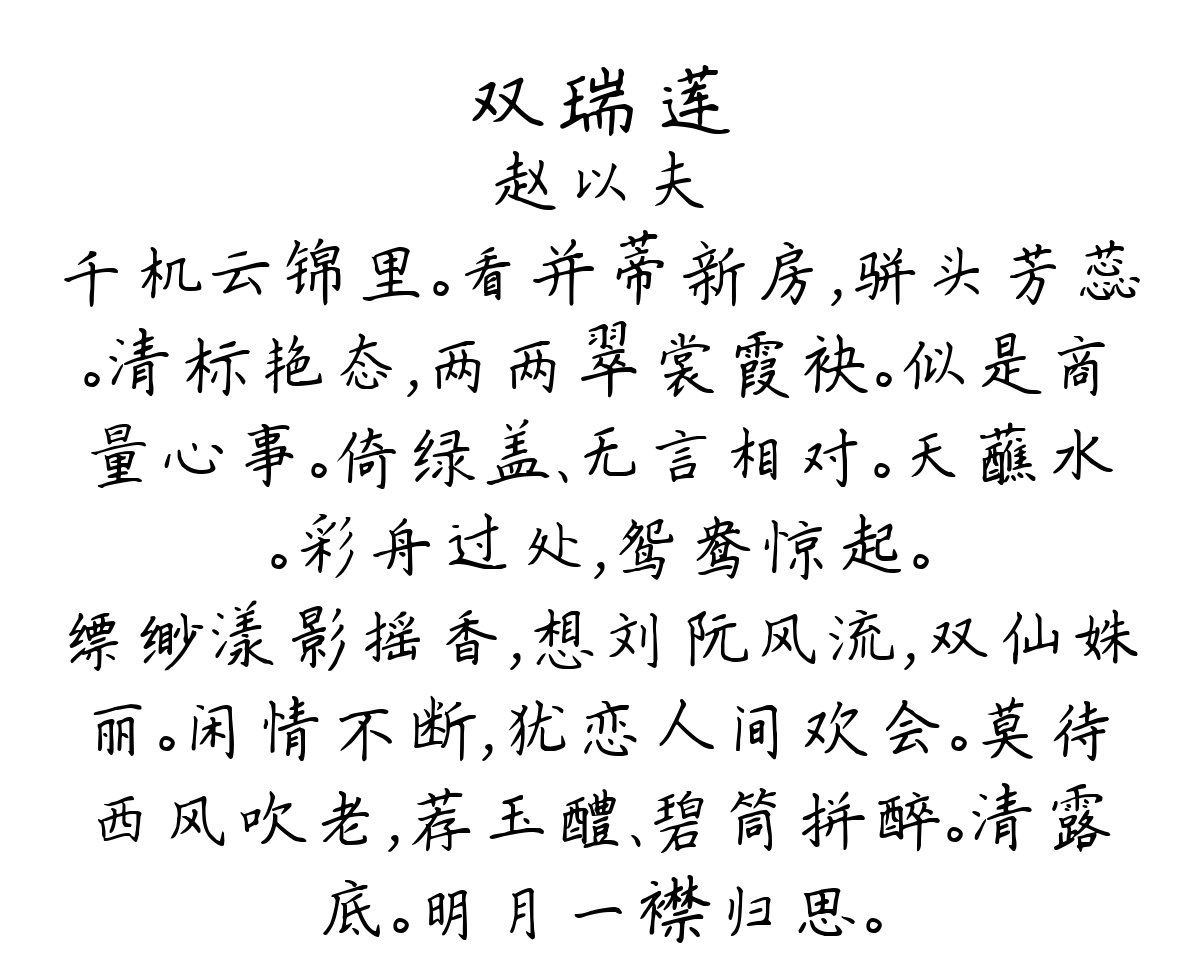 双瑞莲
赵以夫
千机云锦里。看并蒂新房,骈头芳蕊
。清标艳态,两两翠裳霞袂。似是商
量心事。倚绿盖、无言相对。天蘸水
。彩舟过处,鸳鸯惊起。
缥缈漾影摇香,想刘阮风流,双仙姝
丽。闲情不断,犹恋人间欢会。莫待
西风吹老,荐玉醴、碧筒拼醉。清露
底。明月一襟归思。